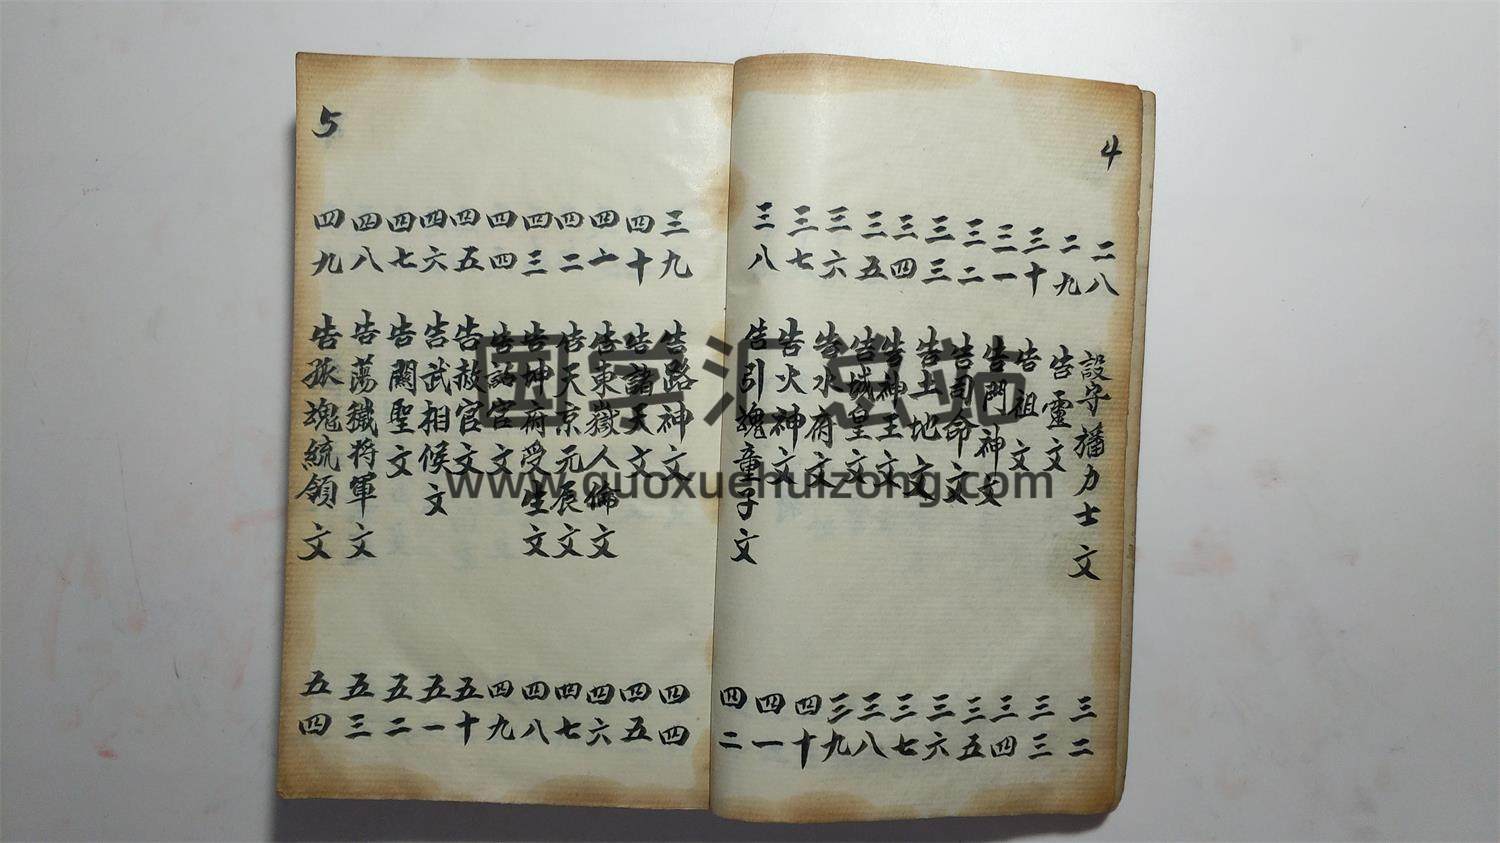 4
二八 設守旛力士文 三二
二九 告靈文 三三
三十 告祖文 三四
三一 告門神文 三五
三二 告司命文 三六
三三 告土地文 三七
三四 告神王文 三八
三五 告城皇文 三九
三六 告水府文 四十
三七 告火神文 四一
三八 告引魂童子文 四二
5
三九 告路神文 四四
四十 告諸天文 四五
四一 告東嶽人倫文 四六
四二 告天京元辰文 四七
四三 告坤府受生文 四八
四四 告官文 四九
四五 告赦官文 五十
四六 告武相候文 五一
四七 告關聖文 五二
四八 告蕩穢將軍文 五三
四九 告孤魂統領文 五四
国学汇总站
www.guoxuehuizong.com